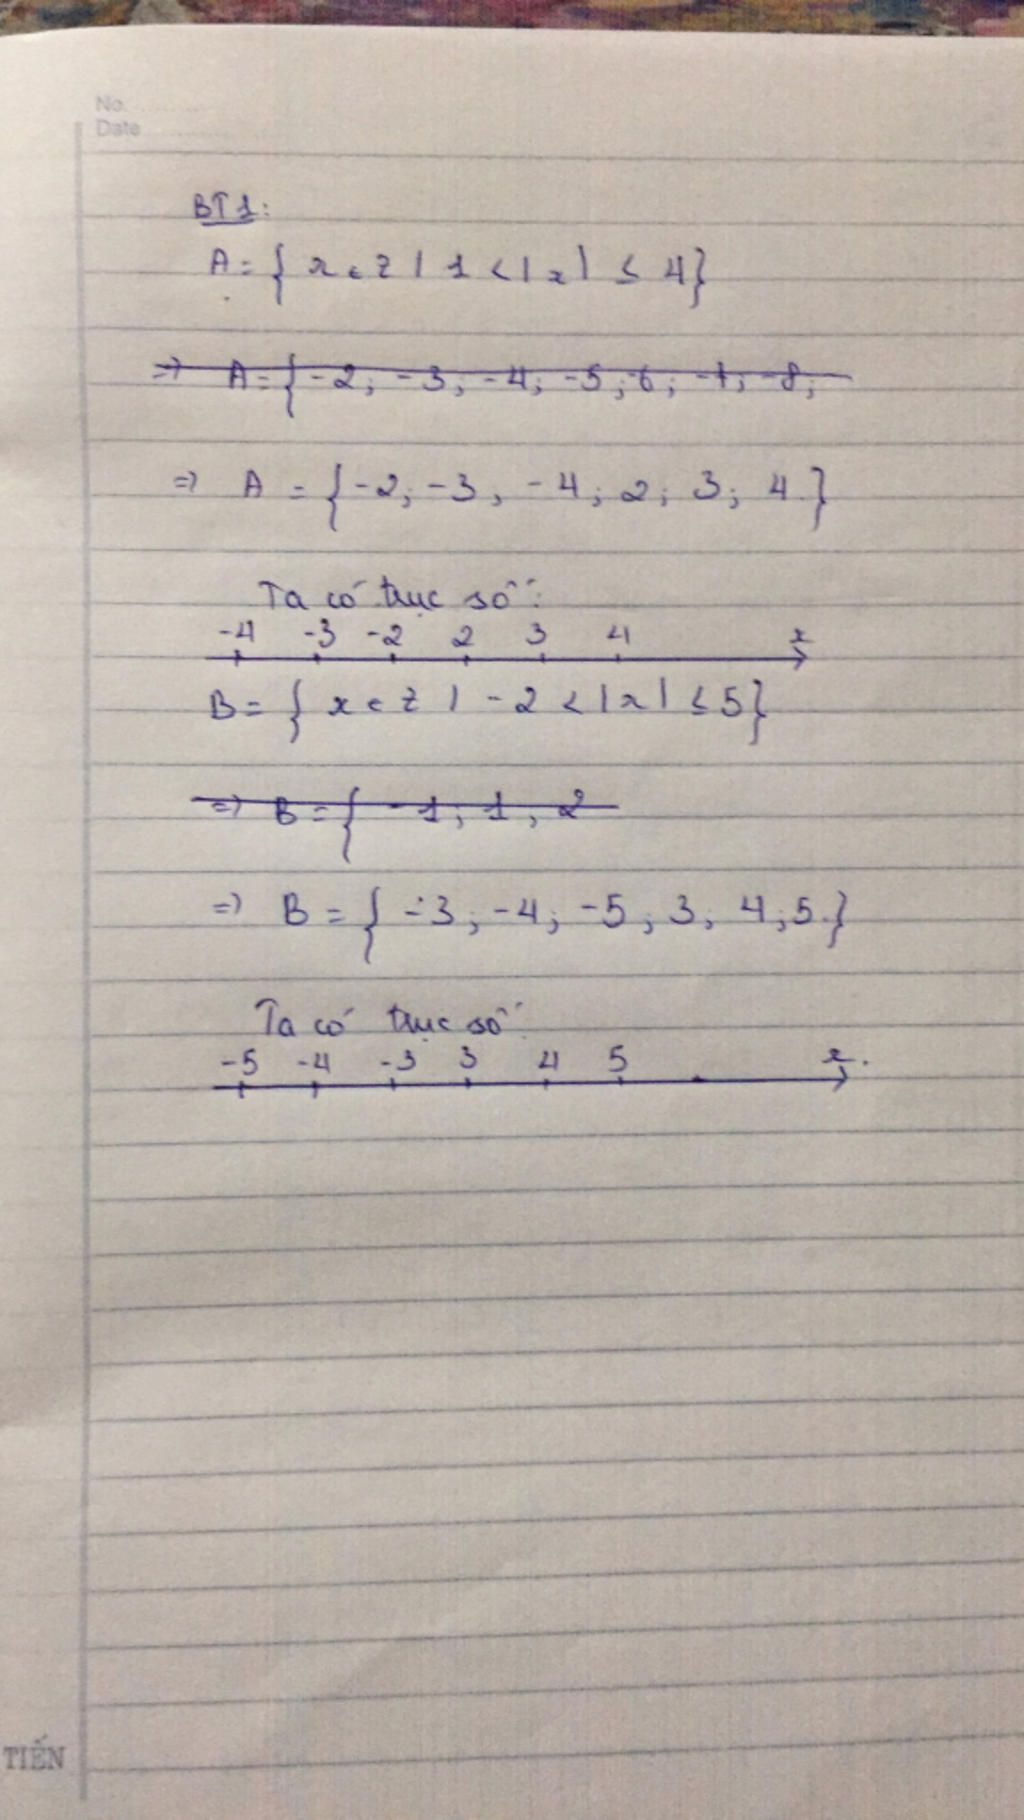 No.
Date
BT1:
A = { x ∈ Z | 1 < |x| ≤ 4}
=> A = { -2; -3; -4; -5; -6; -7; -8;
=> A = { -2; -3, -4; 2; 3; 4.}
Ta có trục số:
-4 -3 -2 2 3 4 x
B = { x ∈ Z | -2 < |x| ≤ 5}
=> B = { -1; 1, 2
=> B = { -3; -4; -5; 3; 4; 5.}
Ta có trục số
-5 -4 -3 3 4 5 x.
TIẾN